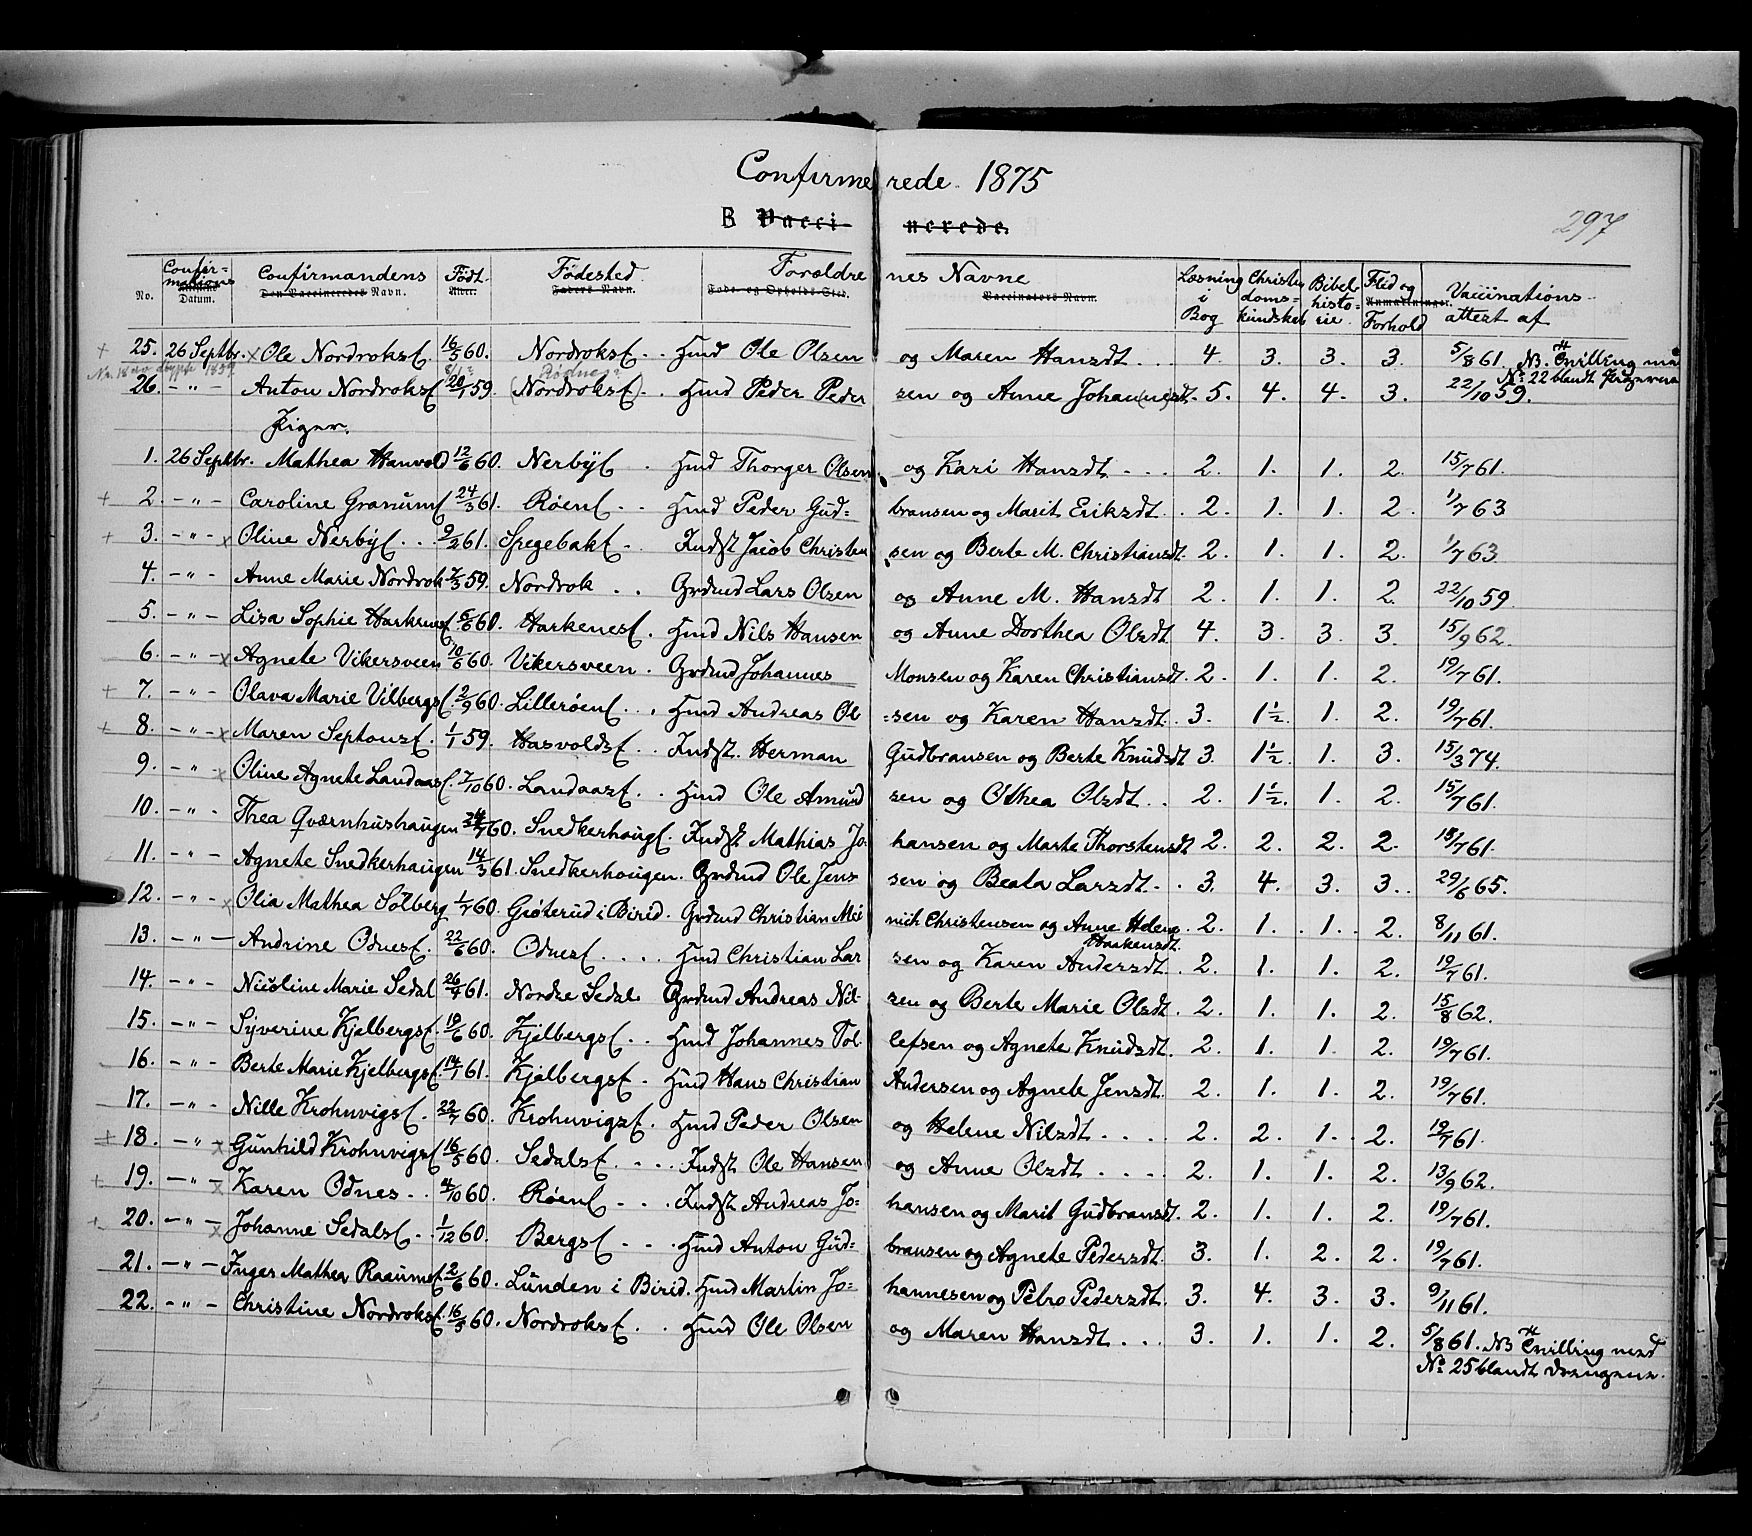 Confirmerede. 1875
B Vaccinerede.
297
No. Confirmations Datum. Confirmandens Navn. Født. Fødested Forældrenes Navne Læsning i Bog Christendomskundskab Bibelhistorie Flid og Forhold Vaccinations-attest af
25. 26 Septbr. Ole Nordroks 16/5 60. Nordroks Hmd Ole Olsen og Maren Hansdt. 4. 3. 3. 3. 5/8 61. NB. Tvilling med
No 22 blandt Pigerne
26. -"- Anton Nordroks 20/1 59. (Nordroks) Hmd Peder Pedersen og Anne Johannesdt. 5. 4. 4. 3. 22/10 59.
Piger.
1. 26 Septbr. Mathea Hanvold 12/6 60. Nerby Hmd Thorger Olsen og Kari Hansdt. 2. 1. 1. 2. 15/7 61.
2. -"- Caroline Granum 24/3 61. Røen Hmd Peder Gudbransen og Marit Eriksdt. 2. 1. 1. 2. 1/7 63
3. -"- Oline Nerby 9/2 61. Spegebak Indst Jacob Christensen og Berte M. Christiansdt. 2. 1. 1. 2. 1/7 63.
4. -"- Anne Marie Nordrok 7/3 59. Nordrok Grdmd Lars Olsen og Anne M. Hansdt 2. 1. 1. 2. 22/10 59.
5. -"- Lisa Sophie Harkenes 5/6 60. Harkenes Hmd Nils Hansen og Anne Dorthea Olsdt 4. 3. 3. 3. 15/9 62.
6. -"- Agnete Vikersveen 10/6 60. Vikersveen Grdmd Johannes Monsen og Karen Christiansdt. 2. 1. 1. 2. 19/7 61.
7. -"- Olava Marie Vilbergs 2/9 60. Lillerøen Hmd Andreas Olsen og Karen Hansdt. 3. 1½. 1. 2. 19/7 61.
8. -"- Maren Septons 1/1 59. Hasvolds Indst. Herman Gudbransen og Berte Knudsdt 3. 1½. 1. 3. 15/3 74.
9. -"- Oline Agnete Landaas 7/10 60. Landaas Hmd Ole Amundsen og Othea Olsdt. 2. 1½. 1. 2. 15/7 61.
10. -"- Thea Qværnhushaugen 60. Snedkerhaug Indst Mathias Johansen og Marte Thorstensdt 2. 2. 2. 2. 15/7 61.
11. -"- Agnete Snedkerhaugen 14/3 61. Snedkerhougen. Grdmd Ole Jensen og Beata Larsdt. 3. 4. 3. 3. 29/6 65.
12. -"- Olia Mathea Solberg 1/7 60. Grøterud i Birid. Grdmd Christian Meinich Christensen og Anne Helene Haakensdt. 2. 1. 1. 2. 8/11 61.
13. -"- Andrine Odnes 22/6 60. Odnes Hmd Christian Larsen og Karen Andersdt. 2. 1. 1. 2. 19/7 61.
14. -"- Nicoline Marie Sedal 26/4 61. Nordre Sedal Grdmd Andreas Nilsen og Berte Marie Olsdt. 2. 1. 1. 2. 15/8 62.
15. -"- Syverine Kjelbergs 19/6 60. Kjelbergs Hmd Johannes Tollefsen og Agnete Knudsdt. 2. 1. 1. 2. 19/7 61.
16. -"- Berte Marie Kjelbergs 14/1 61. Kjelbergs Hmd Hans Christian Andersen og Agnete Jensdt. 2. 1. 1. 2. 19/7 61.
17. -"- Nille Krohnvigs 22/7 60. Krohnvigs Hmd Peder Olsen og Helene Nilsdt. 2. 2. 1. 2. 19/7 61.
18. -"- Gunhild Krohnvigs 16/5 60. Sedals Indst Ole Hansen og Anne Olsdt. 2. 1. 1. 2. 13/9 62.
19. -"- Karen Odnes 4/10 60. Røen Indst Andreas Johansen og Marit Gudbransdt. 2. 1. 1. 2. 19/7 61.
20. -"- Johanne Sedals 1/12 60. Bergs Hmd Anton Gudbransen og Agnete Pedersdt. 3. 1. 2. 2. 19/7 61.
21. -"- Inger Mathea Raaums 2/6 60. Lunden i Birid. Hmd Martin Johannesen og Petro Pedersdt. 3. 4. 3. 3. 9/11 61.
22. -"- Christine Nordroks 16/5 60. Nordroks Hmd Ole Olsen og Maren Hansdt. 3. 1. 1. 2. 5/8 61. NB Tvilling med
No 25 blandt Drengene.